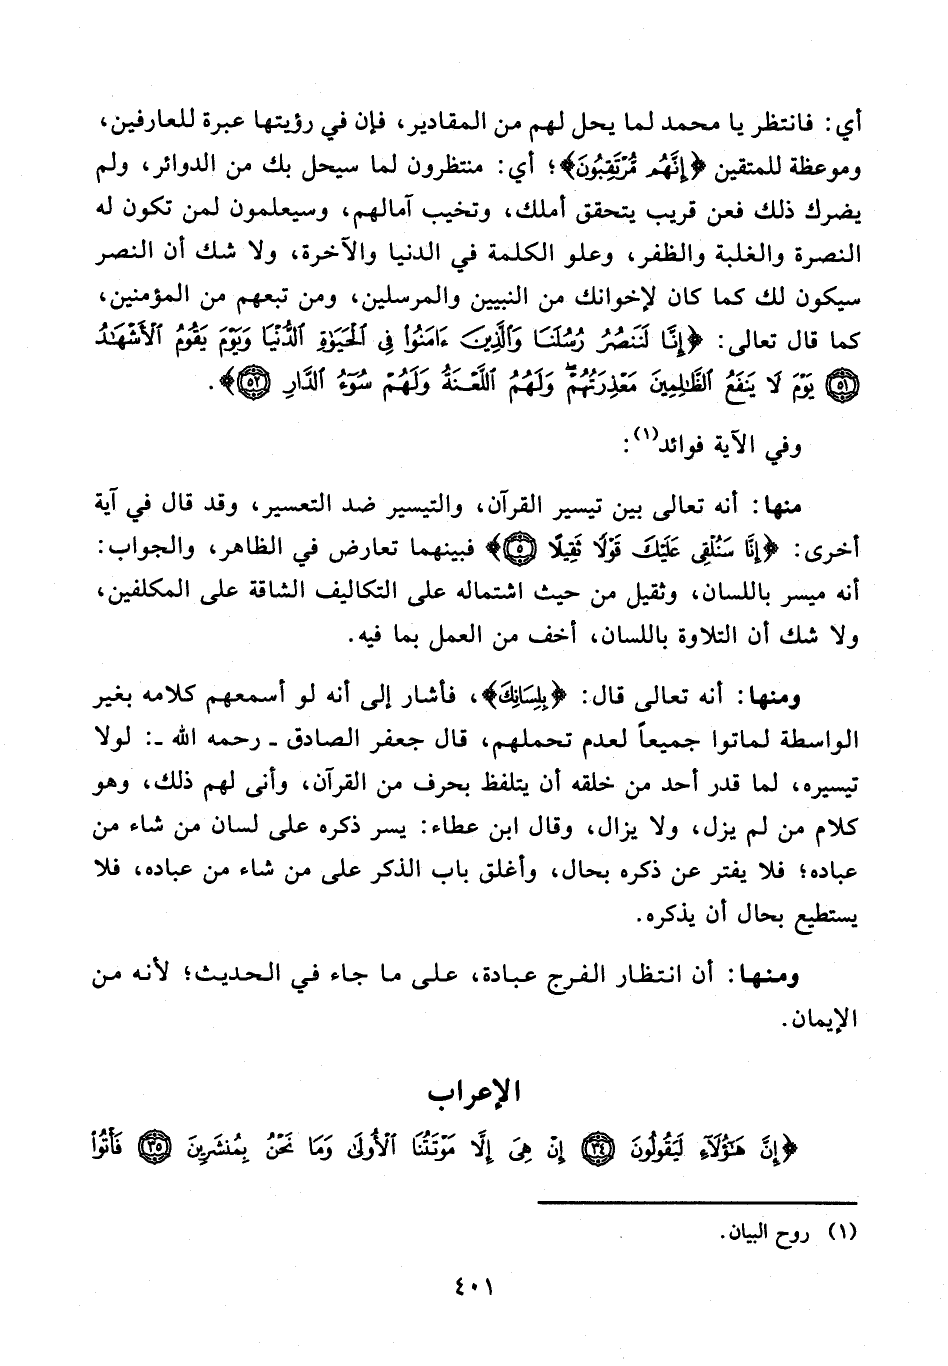 أي: فانتظر يا محمد لما يحل لهم من المقادير، فإن في رؤيتها عبرة للعارفين،
وموعظة للمتقين ﴿إِنَّهُم مُّرْتَقِبُونَ﴾؛ أي: منتظرون لما سيحل بك من الدوائر، ولم
يضرك ذلك فعن قريب يتحقق أملك، وتخيب آمالهم، وسيعلمون لمن تكون له
النصرة والغلبة والظفر، وعلو الكلمة في الدنيا والآخرة، ولا شك أن النصر
سيكون لك كما كان لإخوانك من النبيين والمرسلين، ومن تبعهم من المؤمنين،
كما قال تعالى: ﴿إِنَّا لَنَنصُرُ رُسُلَنَا وَٱلَّذِينَ ءَامَنُوا۟ فِى ٱلْحَيَوٰةِ ٱلدُّنْيَا وَيَوْمَ يَقُومُ ٱلْأَشْهَٰدُ
﴿٥١﴾ يَوْمَ لَا يَنفَعُ ٱلظَّٰلِمِينَ مَعْذِرَتُهُمْ ۖ وَلَهُمُ ٱللَّعْنَةُ وَلَهُمْ سُوٓءُ ٱلدَّارِ ﴿٥٢﴾﴾.
وفي الآية فوائد(١):
منها: أنه تعالى بين تيسير القرآن، والتيسير ضد التعسير، وقد قال في آية
أخرى: ﴿إِنَّا سَنُلْقِى عَلَيْكَ قَوْلًا ثَقِيلًا ﴿٥﴾﴾ فبينهما تعارض في الظاهر، والجواب:
أنه ميسر باللسان، وثقيل من حيث اشتماله على التكاليف الشاقة على المكلفين،
ولا شك أن التلاوة باللسان، أخف من العمل بما فيه.
ومنها: أنه تعالى قال: ﴿بِلِسَانِكَ﴾، فأشار إلى أنه لو أسمعهم كلامه بغير
الواسطة لماتوا جميعاً لعدم تحملهم، قال جعفر الصادق ـ رحمه الله ـ: لولا
تيسيره، لما قدر أحد من خلقه أن يتلفظ بحرف من القرآن، وأنى لهم ذلك، وهو
كلام من لم يزل، ولا يزال، وقال ابن عطاء: يسر ذكره على لسان من شاء من
عباده؛ فلا يفتر عن ذكره بحال، وأغلق باب الذكر على من شاء من عباده، فلا
يستطيع بحال أن يذكره.
ومنها: أن انتظار الفرج عبادة، على ما جاء في الحديث؛ لأنه من
الإيمان.
الإعراب
﴿إِنَّ هَٰٓؤُلَآءِ لَيَقُولُونَ ﴿٣٤﴾ إِنْ هِىَ إِلَّا مَوْتَتُنَا ٱلْأُولَىٰ وَمَا نَحْنُ بِمُنشَرِينَ ﴿٣٥﴾ فَأْتُوا۟
(١) روح البيان.
٤٠١